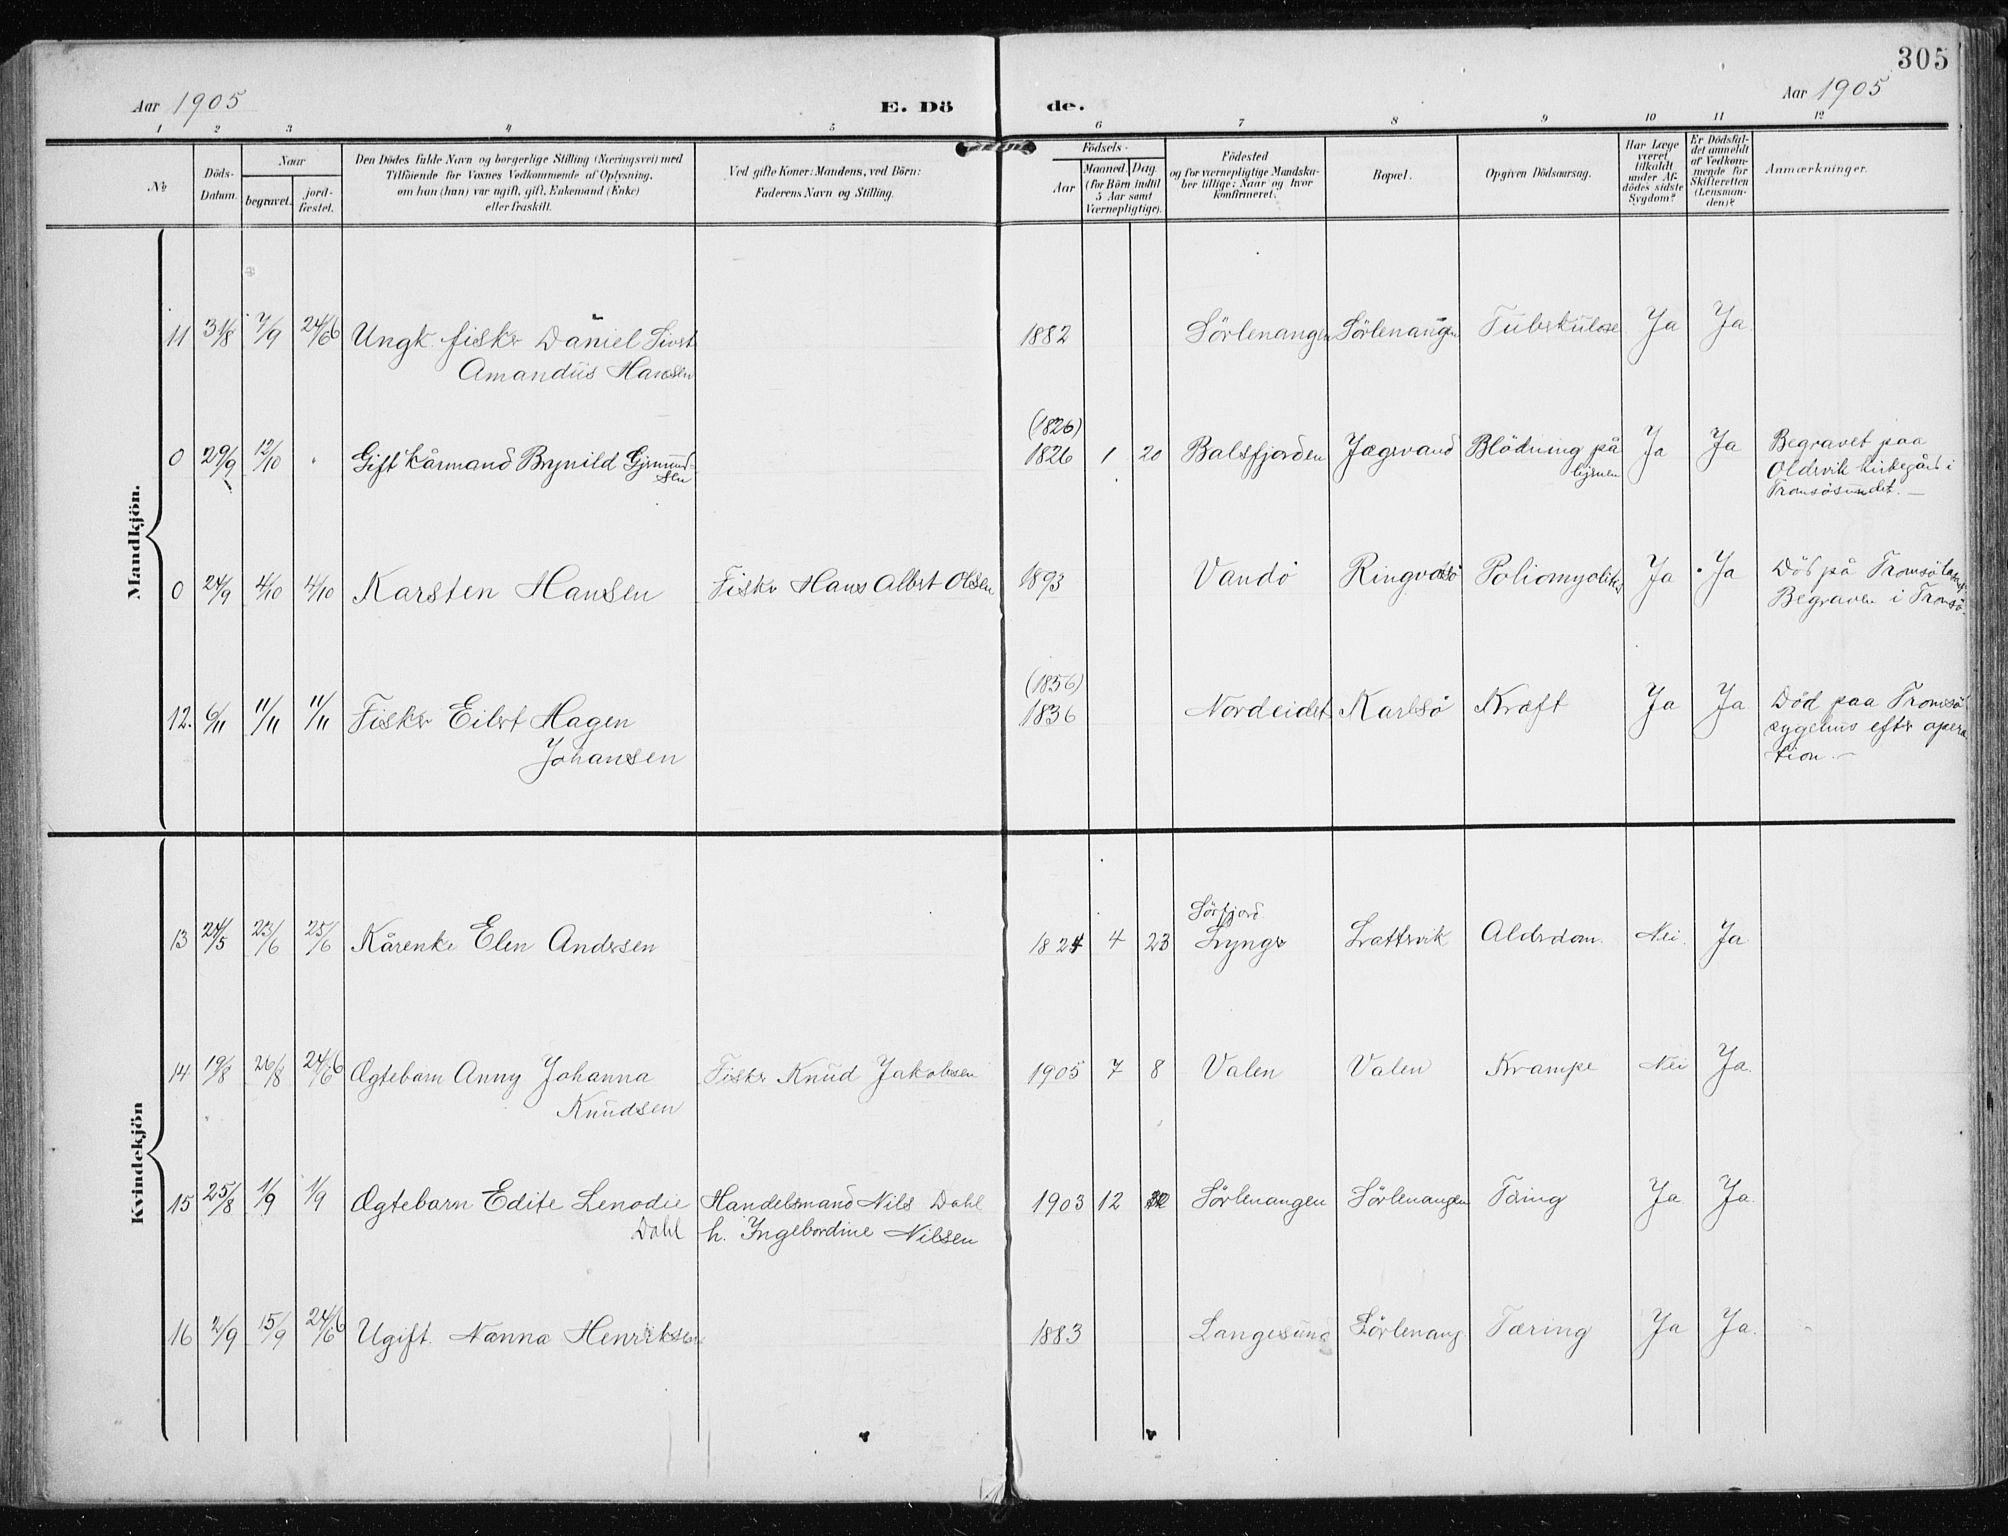 305
Aar 1905
E. Dö de.
Aar 1905
1 2 3 4 5 6 7 8 9 10 11 12
No
Döds-Datum.
Naar
begravet.
jord-fæstet.
Den Dödes fulde Navn og borgerlige Stilling (Næringsvei) med
Tilföiende for Voxnes Vedkommende af Oplysning,
om han (hun) var ugift, gift, Enkemand (Enke)
eller fraskilt.
Ved gifte Koner: Mandens, ved Börn:
Faderens Navn og Stilling.
Födsels-
Aar
Maaned. Dag.
(for Börn indtil
5 Aar samt
Værnepligtige).
Födested
og for værnepligtige Mandska-
ber tillige: Naar og hvor
konfirmeret.
Bopæl.
Opgiven Dödsaarsag.
Har Læge
været
tilkaldt
under Af-
dödes sidste
Sygdom?
Er Dödsfal-
det anmeldt
af Vedkom-
mende for
Skifteretten
(Lensman-
den)?
Anmærkninger.
Mandkjön.
11 31/8 7/9 24/6 06 Ungk. fisker Daniel Sivert 1882 Sörlenangen Sörlenangen Tuberkulose Ja Ja.
Amandus Hansen
(1826)
0 29/9 12/10 Gift kårmand Brynild Gjermund- 1826 1 20 Balsfjorden Jægervand Blödning på Ja Ja Begravet paa
sen Oldervik kirkegård i
Tromsösundet. —
0 24/9 4/10 4/10 Karsten Hansen Fisker Hans Albert Olsen 1893 Vandö Ringvasö Poliomyolitis Ja Ja Död på Tromsö
Begraven i Tromsö.
(1856)
12. 6/11 11/11 11/11 Fisker Eilert Hagen 1836 Nordeidet Karlsö Kræft Ja Ja Död paa Tromsö
Johansen sygehus efter opera
tion. —
Kvindekjön
Sörfjord
13 24/5 23/6 25/6 Kårenke Elen Andersen 1824 4 23 Lyngen Lattervik Alderdom. Nei. Ja
14 19/8 26/8 24/6 06 Ægtebarn Anny Johanna Fisker Knud Jakobsen 1905 7 8 Valen Valen Krampe Nei Ja.
Knudsen
15 25/8 1/9 1/9 Ægtebarn Edite Lenodie Handelsmand Nils Dahl 1903 12 Sörlenangen Sörlenangen Tæring Ja Ja.
Dahl h. Ingebordine Nilsen
16 2/9 15/9 24/6 06 Ugift. Nanna Henriksen 1883 Langesund Sörlenang. Tæring Ja Ja.